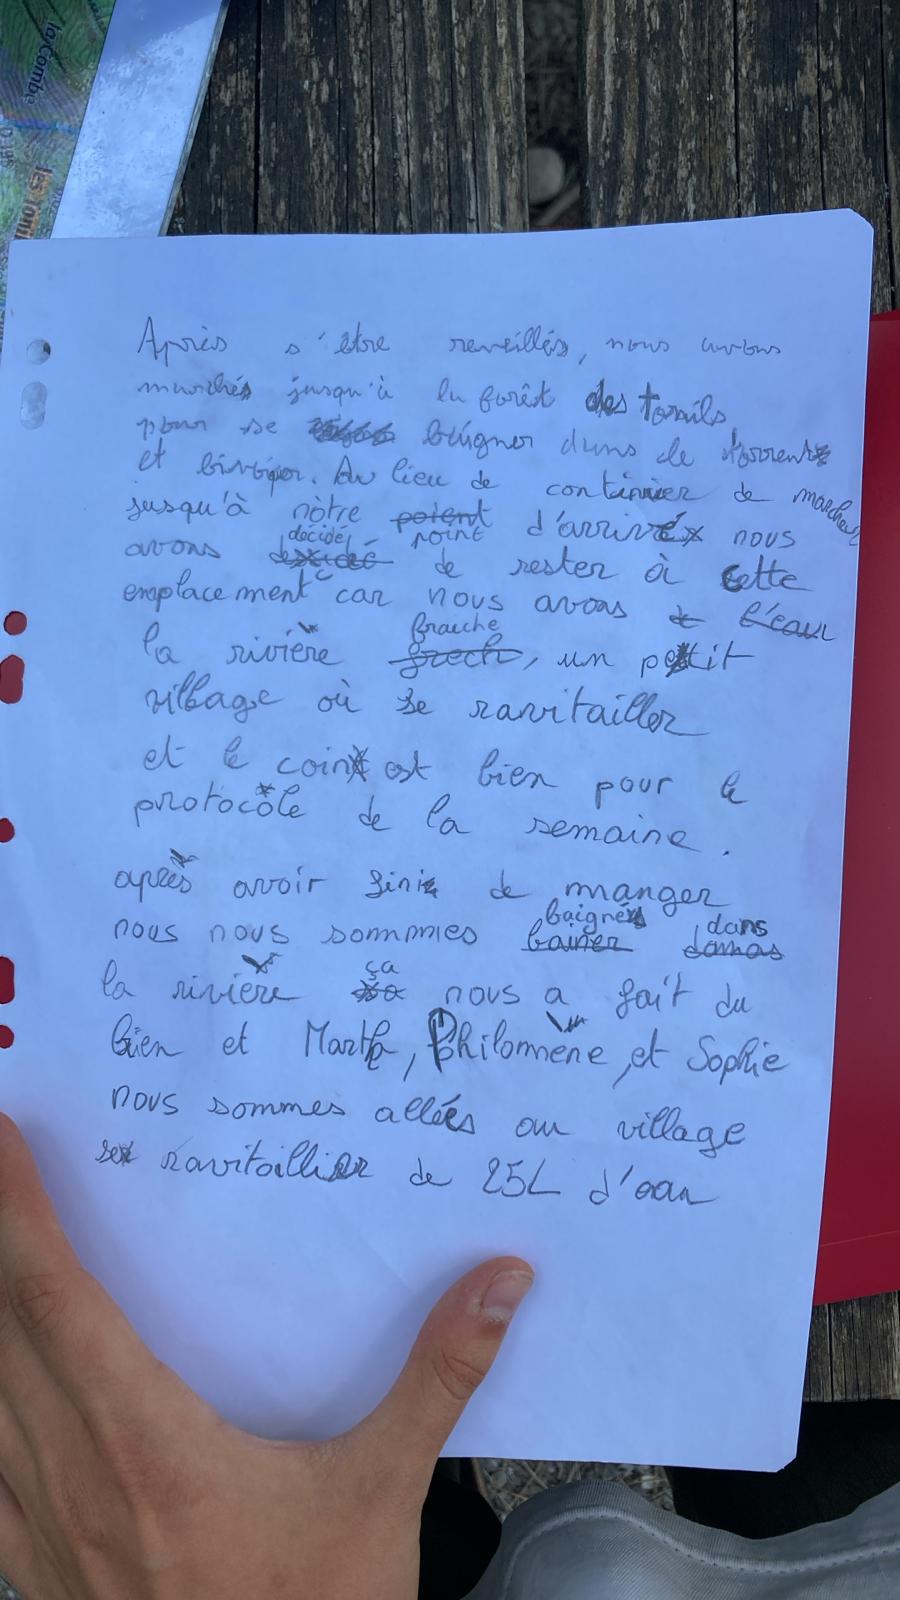 la Combe
Après s'être reveillés, nous avons
marchés jusqu'à la forêt des
pour se baigner dans le torrent
et bivoquer. Au lieu de continuer de marcher
jusqu'à nòtre poient point d'arrivé nous
avons decidé décidé de rester à Cette
emplacement car nous avons l'eau
la rivière grech fraiche, un petit
village où se ravitailler
et le coin est bien pour le
protocole de la semaine.
après avoir fini de manger
nous nous sommmes bainer baignés damas dans
la rivière ça nous a fait du
bien et Martha, Philomène, et Sophie
nous sommes allées au village
se ravitaillier de 25L d'eau